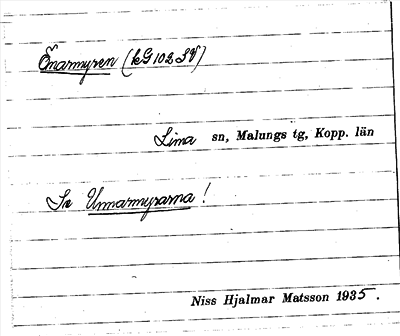 Önarmyren (kG 102 SV)
Lima sn, Malungs tg, Kopp. län
Se Unnarmyrarna!
Niss Hjalmar Matsson 1935.